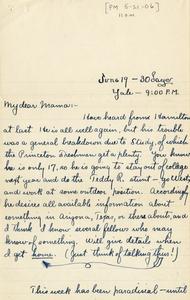 [PM 5-31-06]
11 a.m.
Yale - 9:00 P.M.
My dear Mama:-
Have heard from Hamilton
at last. He is all well again, but his trouble
was a general breakdown due to study, of which
the Princeton Freshmen get a plenty. You know
he is only 17, so he is going to stay out of college
next year and do the Teddy R. stunt - go West,
and work at some outdoor position. Accordingly
he desires all available information about
something in Arizona, Texas, or thereabouts, and
I think I know several fellows who may
know of something. Will give details when
I get home. (Just think of talking this!)
This week has been paradisical - until